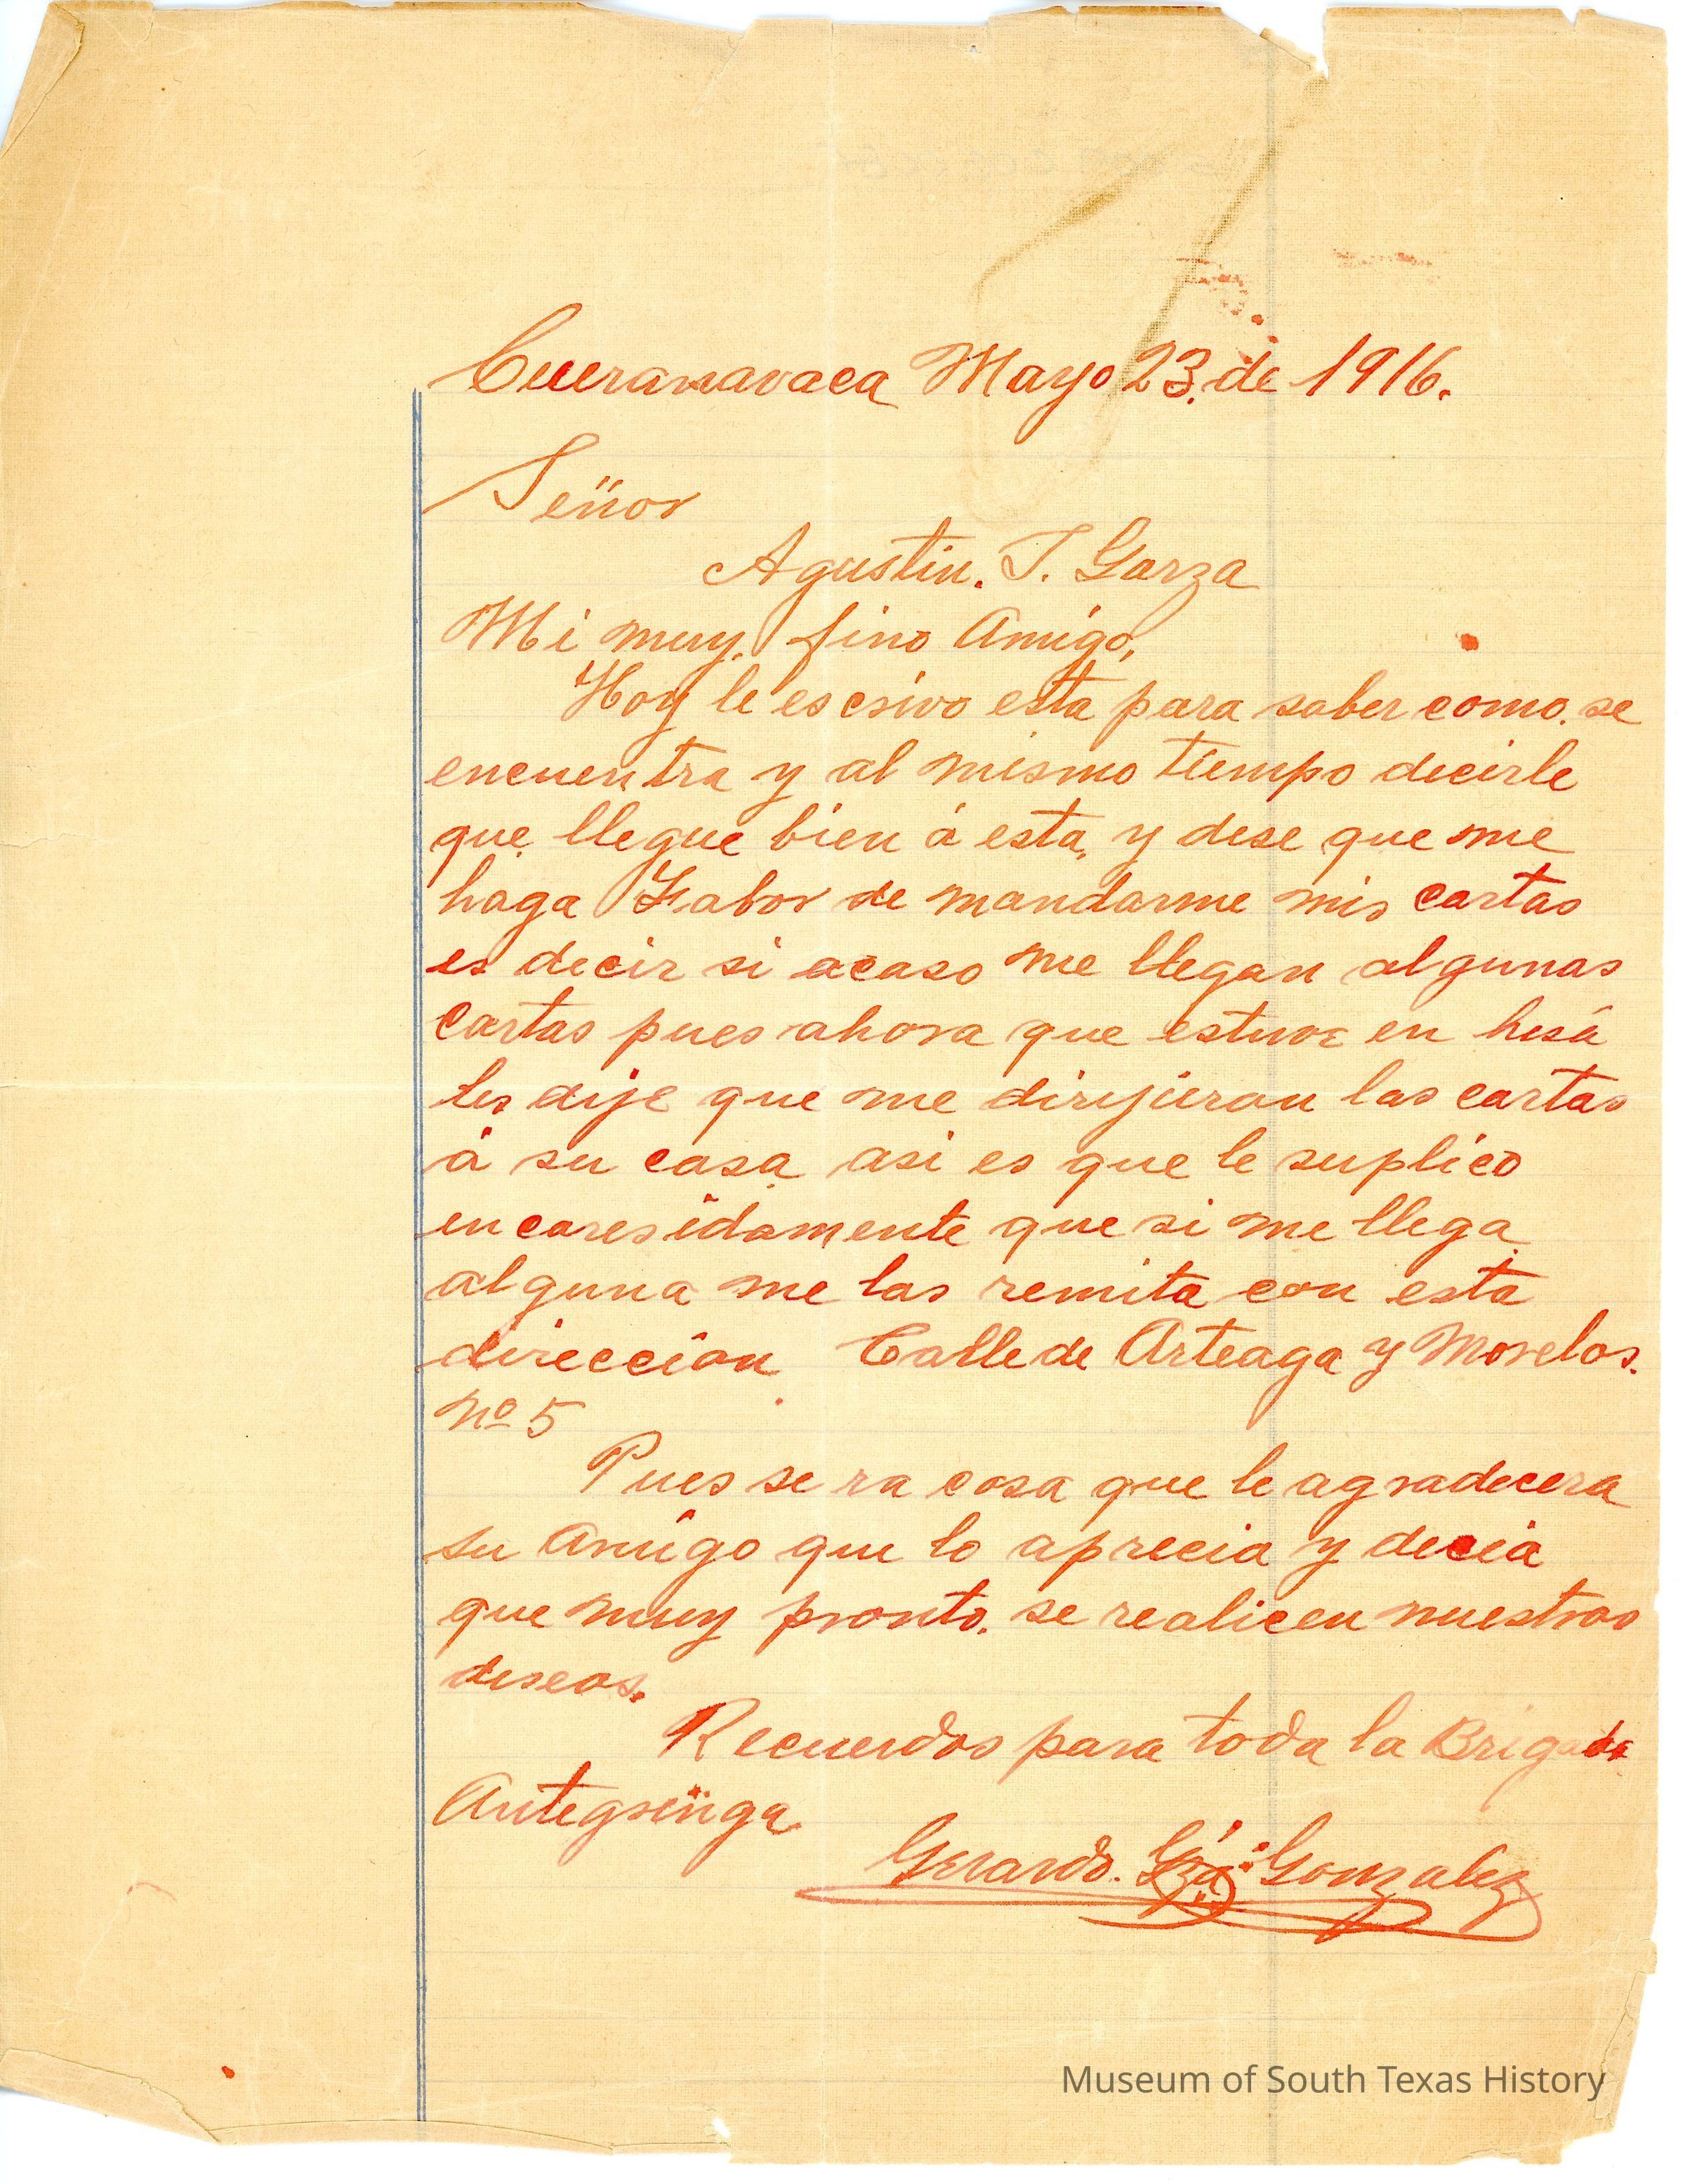 Cueranavaca Mayo 23. de 1916.
Señor
Agustin. S. Garza
Mi muy. fino Amigo,
Hoy le escrivo esta para saber como. se
encuentra y al mismo tiempo decirle
que llegue bien á esta, y dese que me
haga Fabor de mandarme mis cartas
es decir si acaso me llegan algunas
Cartas pues ahora que estuve en hesa
les dije que me dirijieran las cartas
á su casa asi es que le suplico
encaresidamente que si me llega
alguna me las remita con esta
direccion Calle de Arteaga y Morelos.
No 5
Pues se ra cosa que le agradecera
su Amigo que lo aprecia y decia
que muy pronto. se realicen nuestros
deseos.
Recuerdos para toda la Brigada
Antegringa
Gerardo. Gza: Gonzalez
Museum of South Texas History